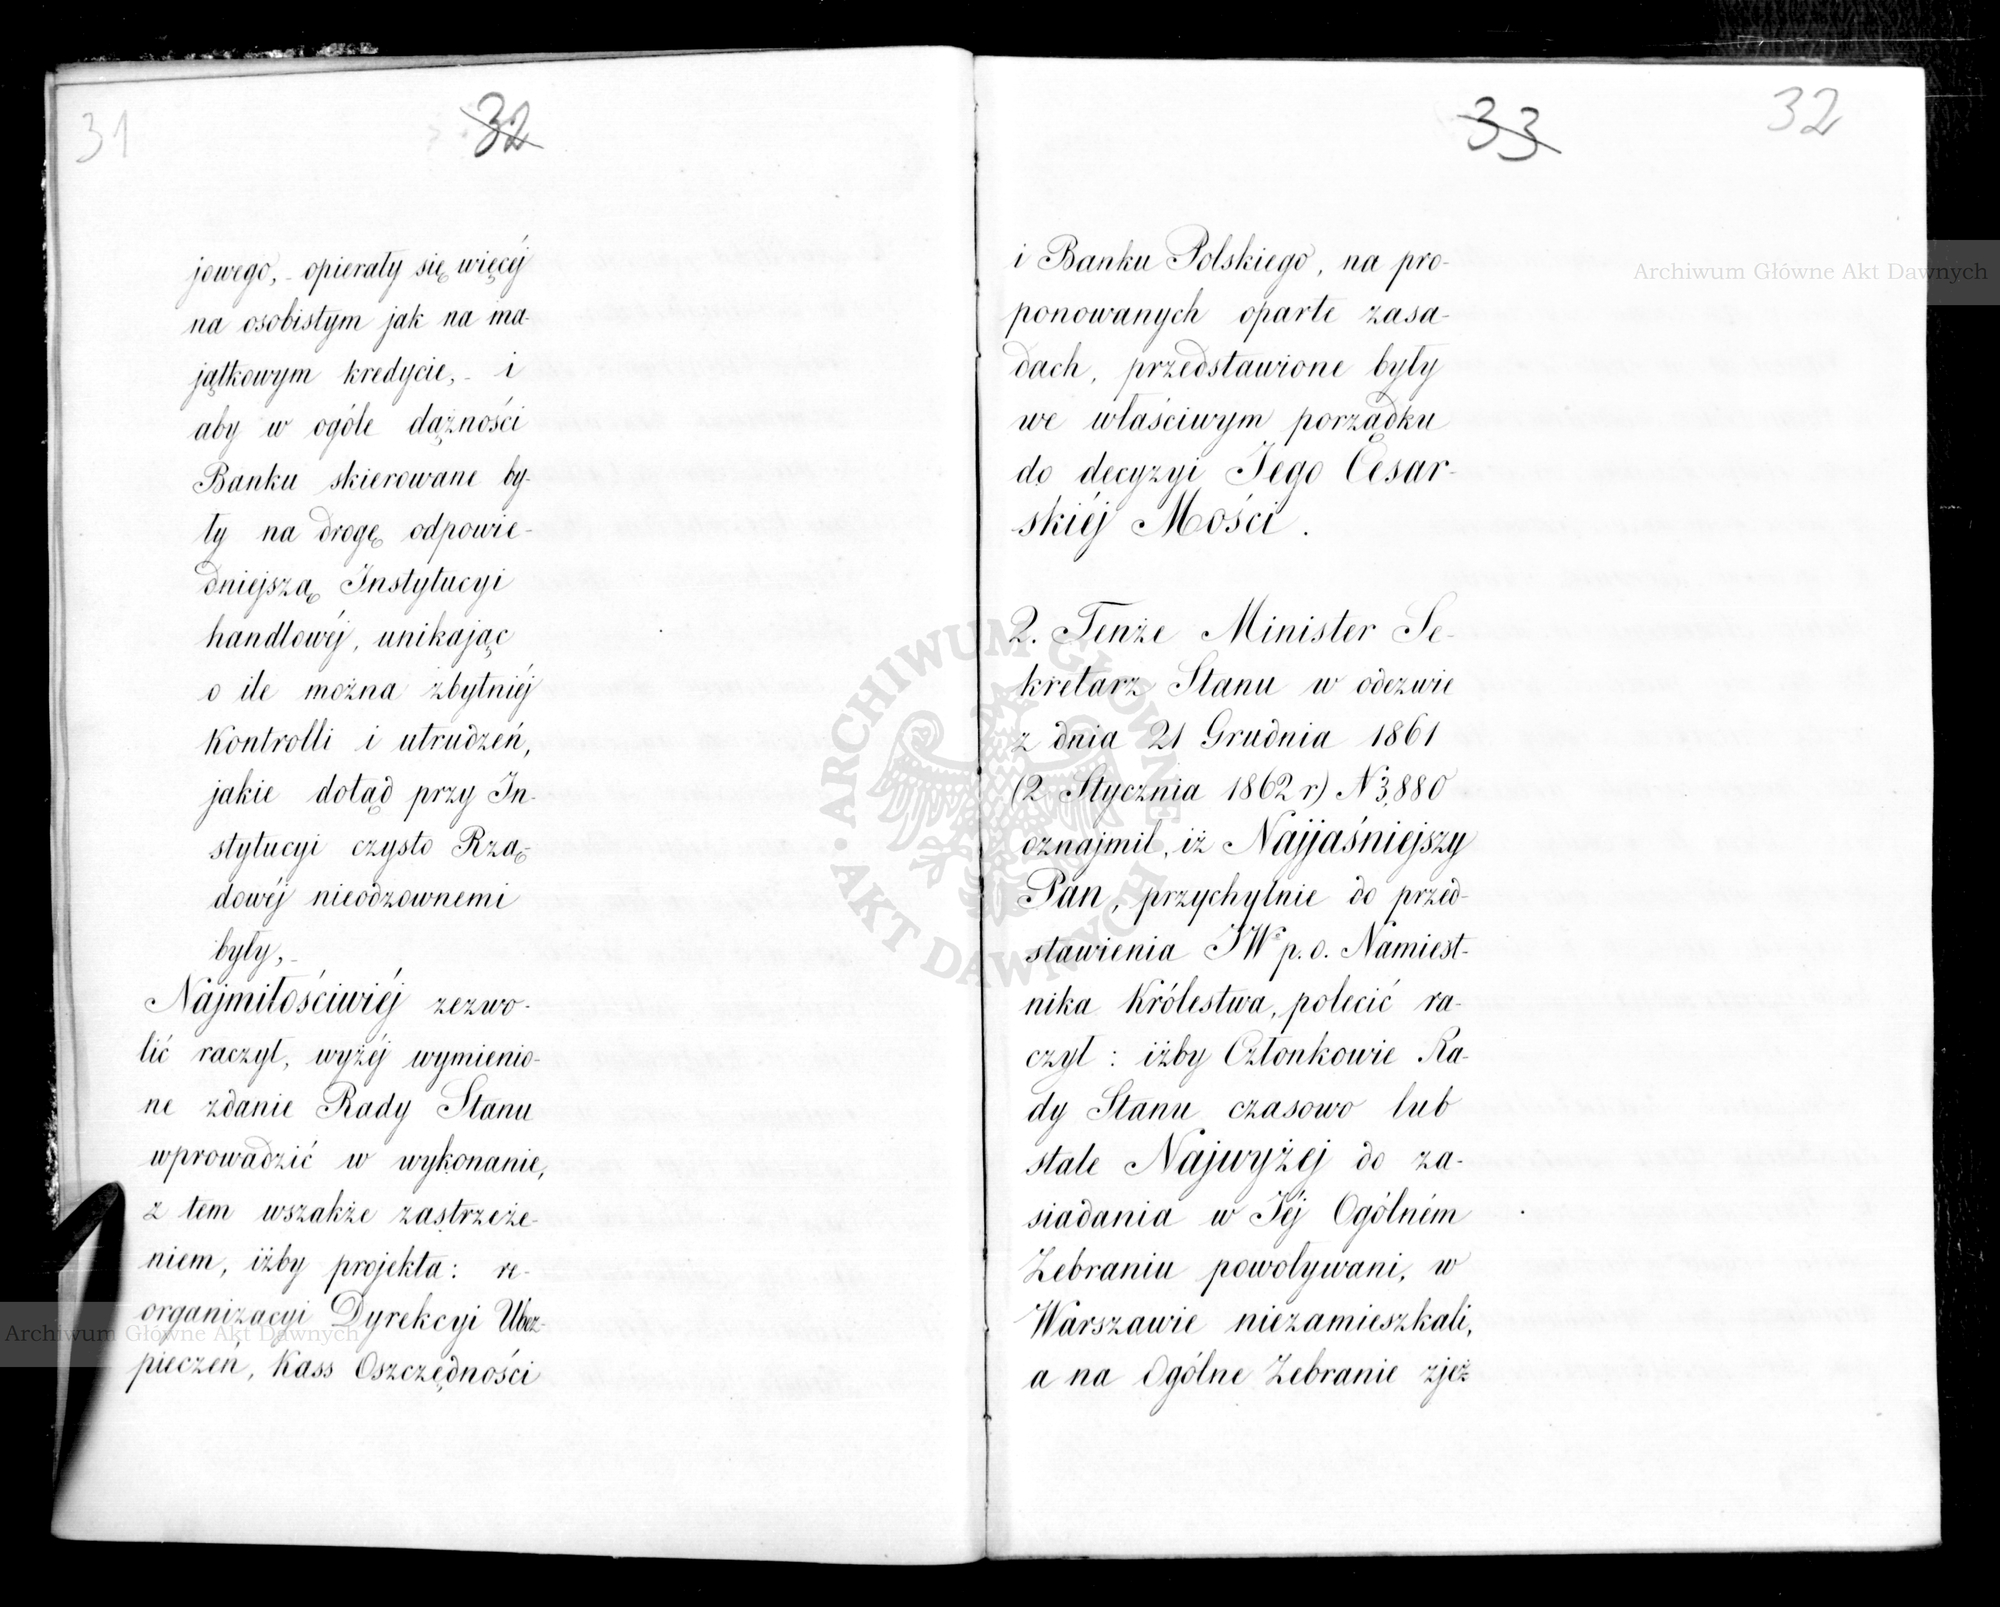 31
32
jowego, opierały się więcéj
na osobistym jak na ma-
jątkowym kredycie, i
aby w ogóle dążności
Banku skierowane by-
ły na drogę odpowie-
dniejszą Instytucyi
handlowéj, unikając
o ile można zbytniéj
Kontrolli i utrudzeń,
jakie dotąd przy In-
stytucyi czysto Rzą-
dowéj nieodzownemi
były,
Najmiłościwiéj zezwo-
lić raczył, wyżéj wymienio-
ne zdanie Rady Stanu
wprowadzić w wykonanie,
z tem wszakże zastrzeże-
niem, iżby projekta: re-
organizacyi Dyrekcyi Ubez-
pieczeń, Kass Oszczędności
33
32
i Banku Polskiego, na pro-
ponowanych oparte zasa-
dach, przedstawione były
we właściwym porządku
do decyzyi Jego Cesar-
skiéj Mości.
2. Tenże Minister Se-
kretarz Stanu w odezwie
z dnia 21 Grudnia 1861
(2 Stycznia 1862 r) N 3,880
oznajmił, iż Najjaśniejszy
Pan, przychylnie do przed-
stawienia JW p. o. Namiest-
nika Królestwa, polecić ra-
czył: iżby Członkowie Ra-
dy Stanu czasowo lub
stale Najwyżej do za-
siadania w Jéj Ogólném
Zebraniu powoływani, w
Warszawie niezamieszkali,
a na Ogólne Zebranie zjeż
Archiwum Główne Akt Dawnych
ARCHIWUM GŁÓWNE AKT DAWNYCH
Archiwum Główne Akt Dawnych